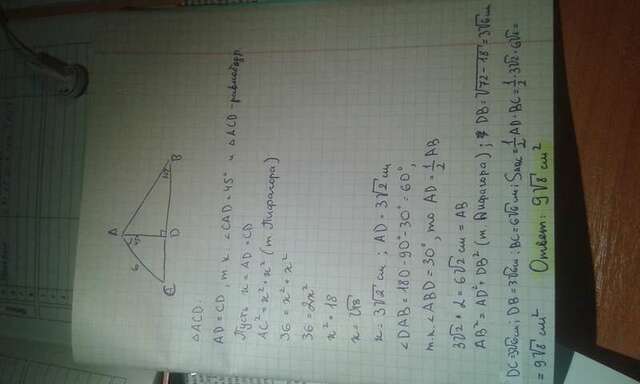 A
6
45°
30°
C
D
B
△ACD.
AD = CD, т.к ∠CAD = 45° и △ACD - равнобедр.
Пусть x = AD = CD
AC² = x² + x² (т. Пифагора)
36 = x² + x²
36 = 2x²
x² = 18
x = √18
x = 3√2 см; AD = 3√2 см
∠DAB = 180 - 90° - 30° = 60°,
т.к ∠ABD = 30°, то AD = ½ AB
3√2 · 2 = 6√2 см = AB
AB² = AD² + DB² (т. Пифагора); DB = √72 - 18 = 3√6 см
DC = 3√6 см; DB = 3√6 см; BC = 6√6 см; S = ½ AD · BC = ½ · 3√2 · 6√6 =
= 9√8 см² Ответ: 9√8 см²